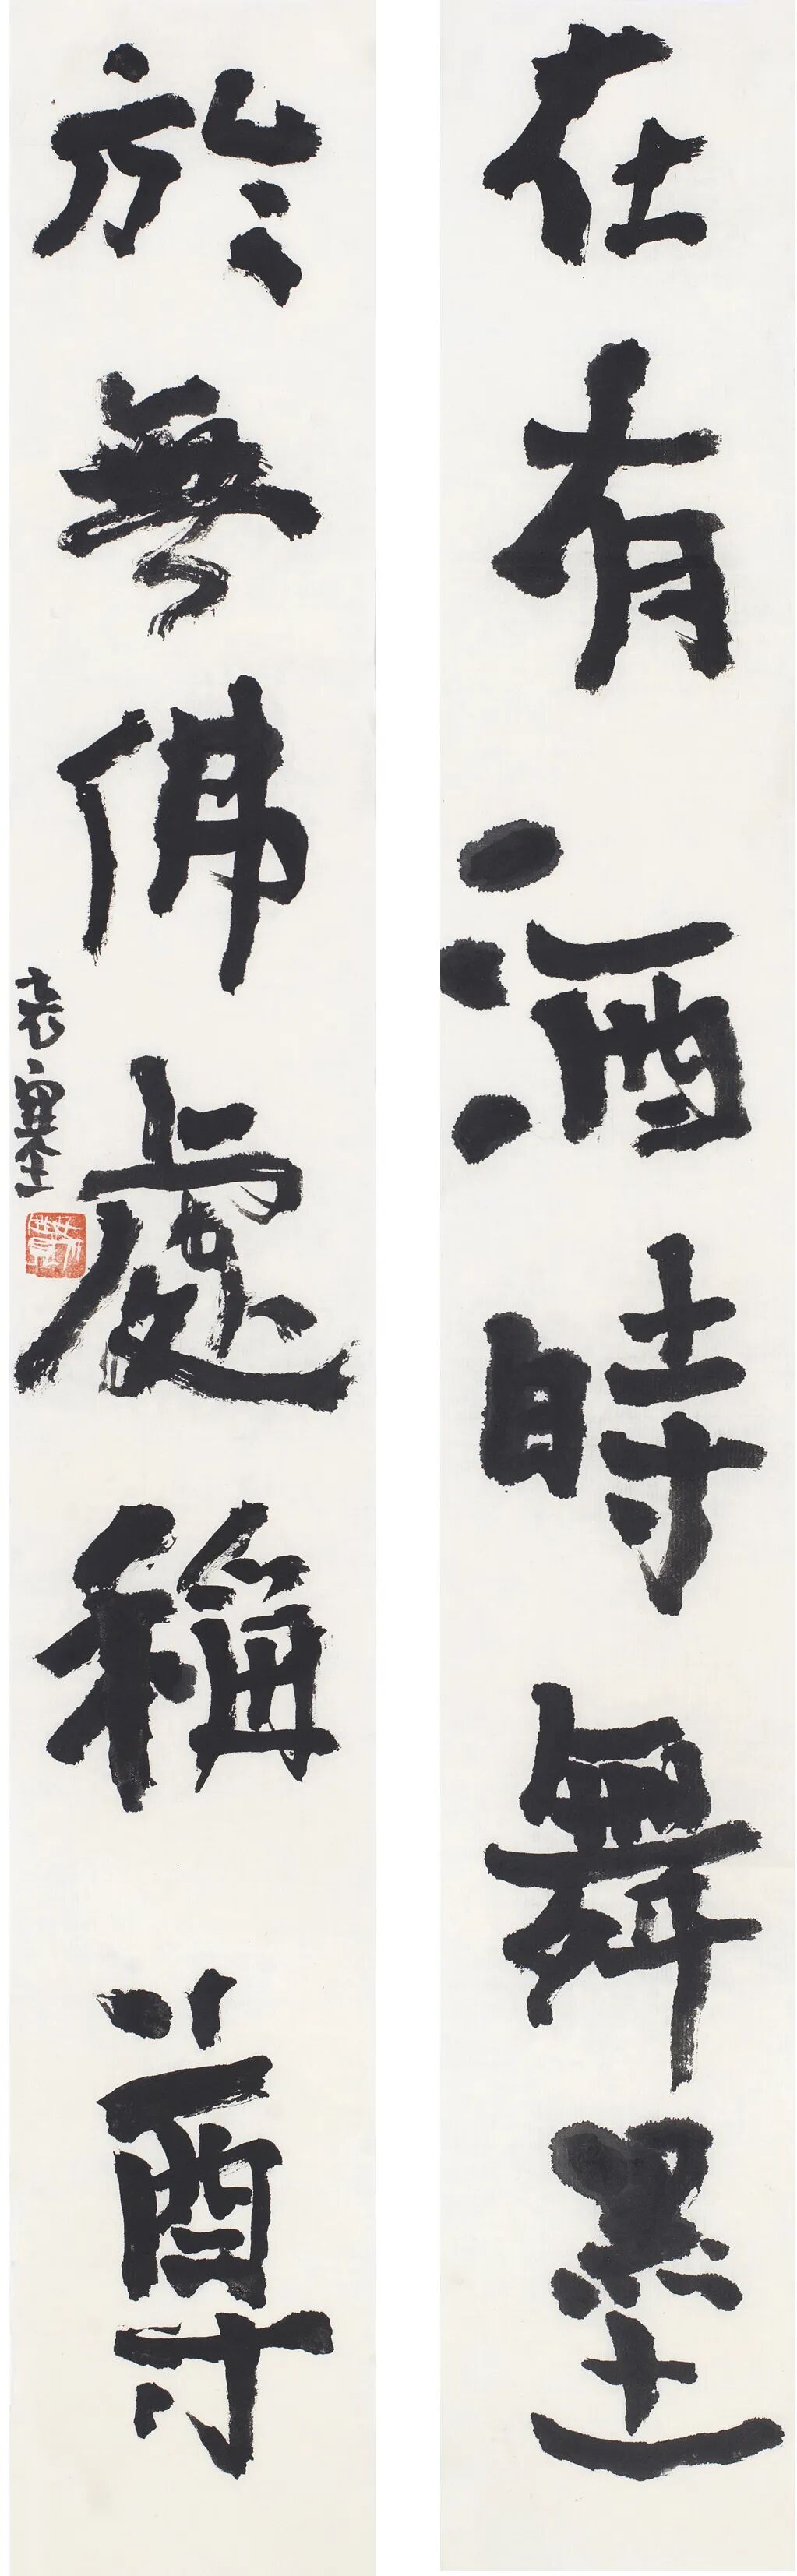 在有酒時舞墨
於無佛處稱尊